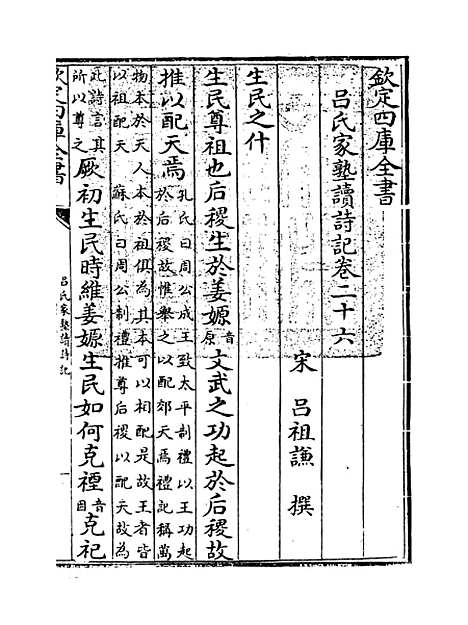 欽定四庫全書
呂氏家塾讀詩記卷二十六
宋 呂祖謙 撰
生民之什
生民尊祖也后稷生於姜嫄音原文武之功起於后稷故
推以配天焉孔氏曰周公成王致太平制禮以王功起
於后稷故惟舉之以配郊天焉禮記稱萬
物本於天人本於祖俱為其本可以相配是故王者皆
以祖配天 蘇氏曰周公制禮推尊后稷以配天故為
此詩言其
所以尊之厥初生民時維姜嫄生民如何克禋音因克祀
欽定四庫全書
呂氏家塾讀詩記
一